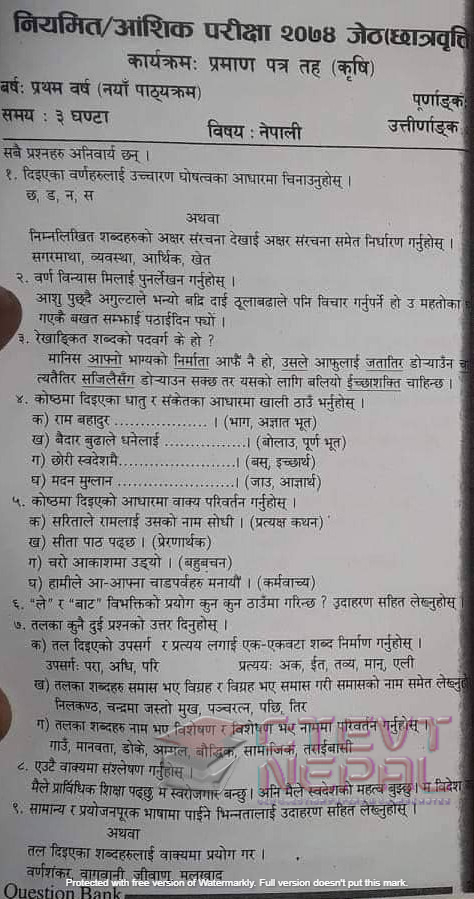 नियमित/आंशिक परीक्षा २०७४ जेठ(छात्रवृत्ति
कार्यक्रमः प्रमाण पत्र तह (कृषि)
वर्षः प्रथम वर्ष (नयाँ पाठ्यक्रम)
पूर्णाङ्कः
समय : ३ घण्टा
विषय : नेपाली
उत्तीर्णाङ्क
सबै प्रश्नहरु अनिवार्य छन् ।
१. दिइएका वर्णहरुलाई उच्चारण घोषत्वका आधारमा चिनाउनुहोस् ।
छ, ड, न, स
अथवा
निम्नलिखित शब्दहरुको अक्षर संरचना देखाई अक्षर संरचना समेत निर्धारण गर्नुहोस् ।
सगरमाथा, व्यवस्था, आर्थिक, खेत
२. वर्ण विन्यास मिलाई पुनर्लेखन गर्नुहोस् ।
आशु पुछ्दै अगुल्टाले भन्यो बद्रि दाई ठूलाबढाले पनि विचार गर्नुपर्ने हो उ महतोका
गएकै बखत सम्झाई पठाईदिन फ्यों ।
३. रेखाङ्कित शब्दको पदवर्ग के हो ?
मानिस आफ्नो भाग्यको निर्माता आफैं नै हो, उसले आफुलाई जतातिर डोऱ्याउँन
त्यतैतिर सजिलैसँग डोऱ्याउन सक्छ तर यसको लागि बलियो ईच्छाशक्ति चाहिन्छ ।
४. कोष्ठमा दिइएका धातु र संकेतका आधारमा खाली ठाउँ भर्नुहोस् ।
क) राम बहादुर .................. । (भाग, अज्ञात भूत)
ख) बैदार बुढाले धनेलाई ................। (बोलाउ, पूर्ण भूत)
ग) छोरी स्वदेशमै........................। (बस्, इच्छार्थ)
घ) मदन मुग्लान ........................। (जाउ, आज्ञार्थ)
५. कोष्ठमा दिइएको आधारमा वाक्य परिवर्तन गर्नुहोस् ।
क) सरिताले रामलाई उसको नाम सोधी । (प्रत्यक्ष कथन)
ख) सीता पाठ पढ्छ । (प्रेरणार्थक)
ग) चरो आकाशमा उड्यो । (बहुबचन)
घ) हामीले आ-आफ्ना चाडपर्वहरु मनायौं । (कर्मवाच्य)
६. “ले” र “बाट” विभक्तिको प्रयोग कुन कुन ठाउँमा गरिन्छ ? उदाहरण सहित लेख्नुहोस् ।
७. तलका कुनै दुई प्रश्नको उत्तर दिनुहोस् ।
क) तल दिइएको उपसर्ग र प्रत्यय लगाई एक-एकवटा शब्द निर्माण गर्नुहोस् ।
उपसर्गः परा, अधि, परि प्रत्ययः अक, ईत, तव्य, मान्, एली
ख) तलका शब्दहरु समास भए विग्रह र विग्रह भए समास गरी समासको नाम समेत लेख्नु
निलकण्ठ, चन्द्रमा जस्तो मुख, पञ्चरत्न, पछि, तिर
ग) तलका शब्दहरु नाम भए विशेषण र विशेषण भए नाममा परिवर्तन गर्नुहोस् ।
गाउँ, मानवता, डोके, अम्मल, बौद्धिक, सामाजिक, तराईबासी
CTEVT
NEPAL
८. एउटै वाक्यमा संश्लेषण गर्नुहोस् ।
मैले प्राविधिक शिक्षा पढ्छु । म स्वरोजगार बन्छु । अनि मैले स्वदेशको महत्व बुझ्छु । म विदेश
९. सामान्य र प्रयोजनपूरक भाषामा पाईने भिन्नतालाई उदाहरण सहित लेख्नुहोस् ।
अथवा
तल दिइएका शब्दहरुलाई वाक्यमा प्रयोग गर ।
वर्णशंकर, वागवानी, जीवाणु, मलखाद
Protected with free version of Watermarkly. Full version doesn't put this mark.
Question Bank